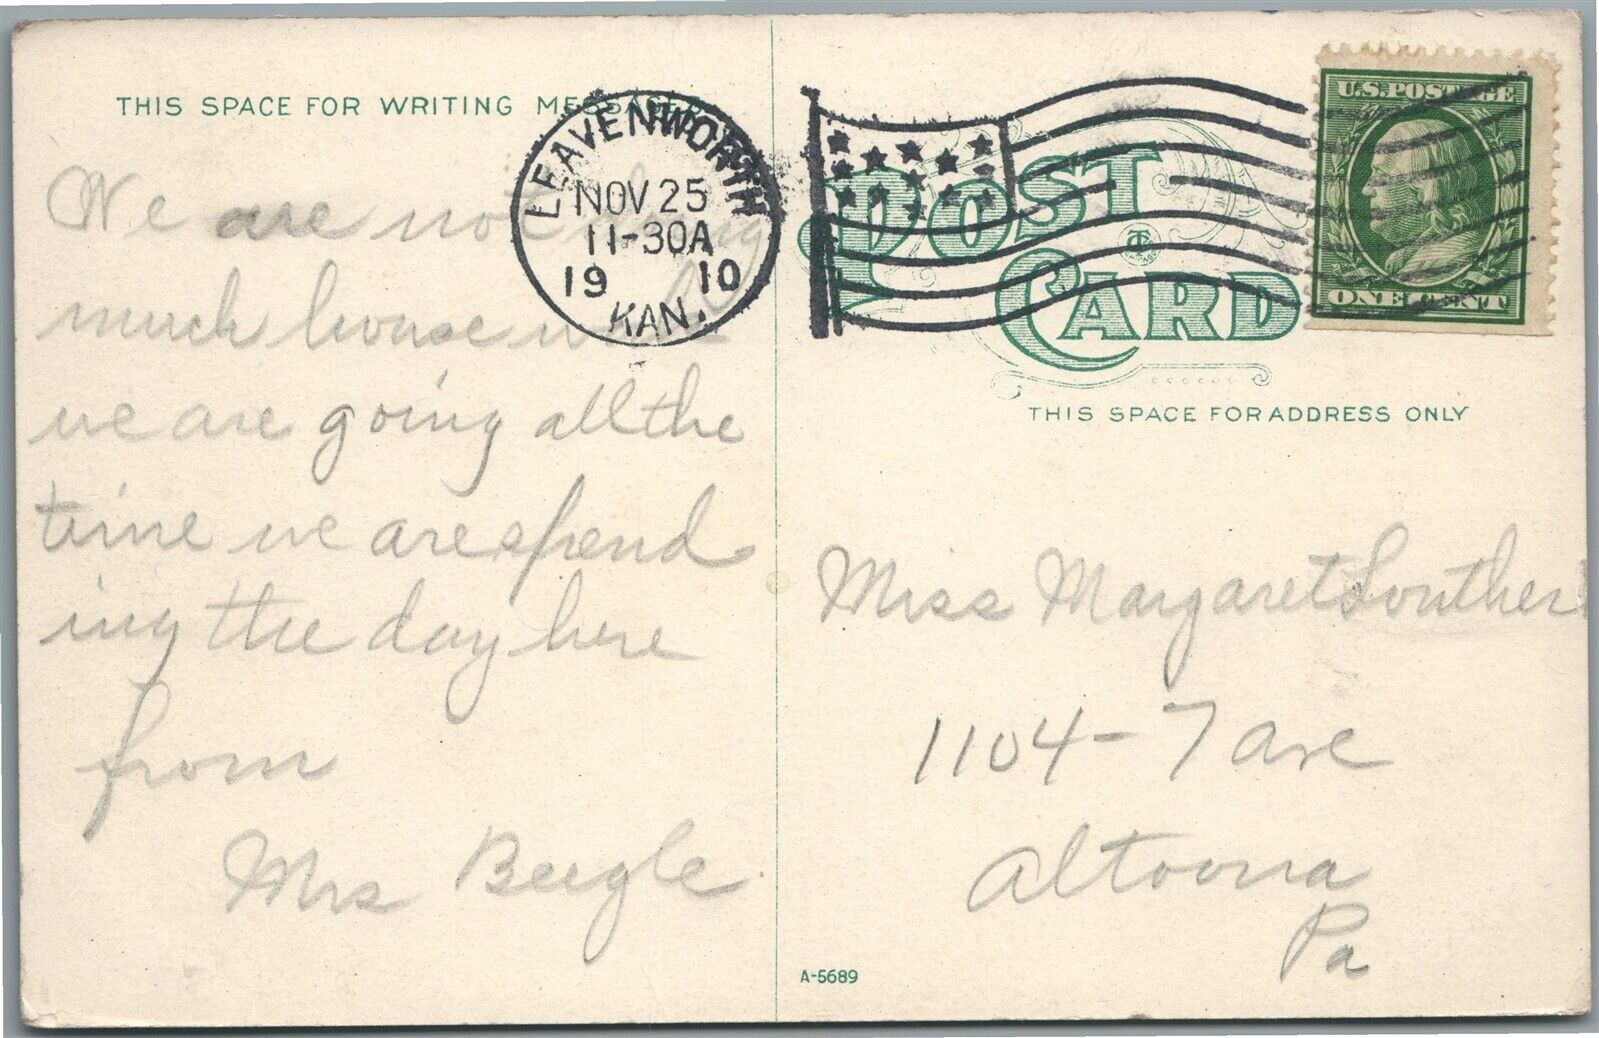 THIS SPACE FOR WRITING MESSAGES
LEAVENWORTH
NOV 25
11-30A
19 10
KAN.
We are not doing
much house work
we are going all the
time we are spend
ing the day here
from
Mrs Beegle
U.S. POSTAGE
ONE CENT
POST
CARD
THIS SPACE FOR ADDRESS ONLY
Miss Margaret Souther
1104-7 ave
Altoona
Pa
A-5689